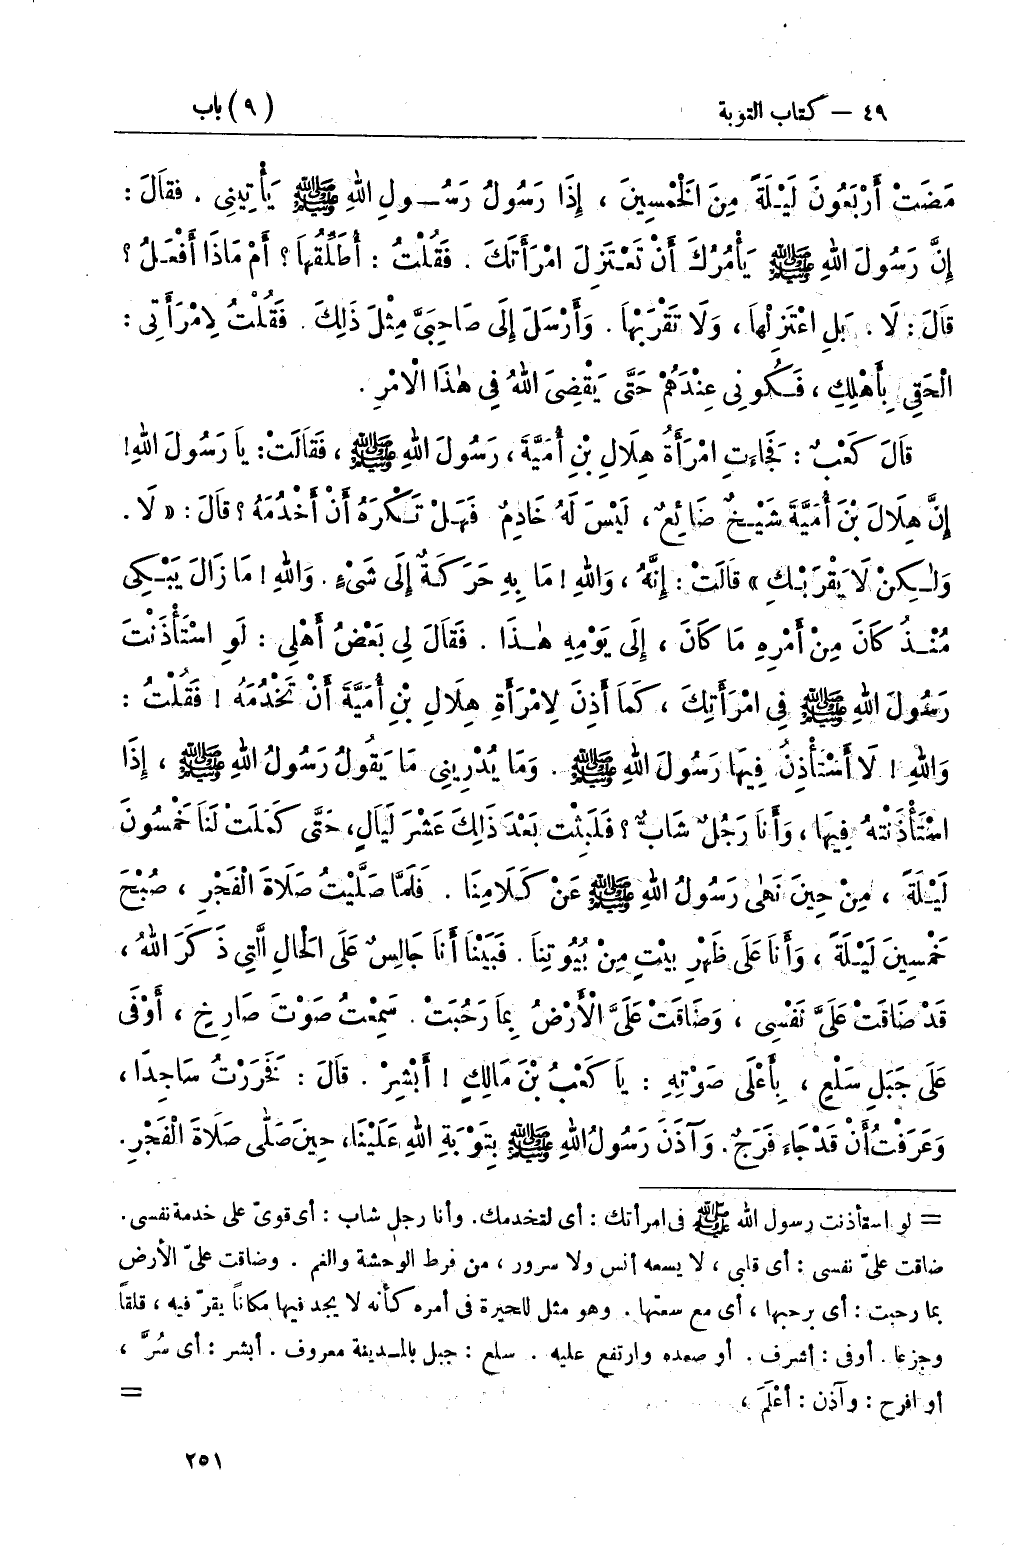 ٤٩ — كتاب التوبة (٩) باب
مَضَتْ أَرْبَعُونَ لَيْلَةً مِنَ الْخَمْسِينَ ، إِذَا رَسُولُ رَسُولِ اللهِ ﷺ يَأْتِينِي . فَقَالَ :
إِنَّ رَسُولَ اللهِ ﷺ يَأْمُرُكَ أَنْ تَعْتَزِلَ امْرَأَتَكَ . فَقُلْتُ : أُطَلِّقُهَا ؟ أَمْ مَاذَا أَفْعَلُ ؟
قَالَ : لَا . بَلِ اعْتَزِلْهَا ، وَلَا تَقْرَبْهَا . وَأَرْسَلَ إِلَى صَاحِبَيَّ مِثْلَ ذَلِكَ . فَقُلْتُ لِامْرَأَتِي :
الْحَقِي بِأَهْلِكِ ، فَكُونِي عِنْدَهُمْ حَتَّى يَقْضِيَ اللهُ فِي هٰذَا الْأَمْرِ .
قَالَ كَعْبٌ : فَجَاءَتِ امْرَأَةُ هِلَالِ بْنِ أُمَيَّةَ ، رَسُولَ اللهِ ﷺ ، فَقَالَتْ : يَا رَسُولَ اللهِ !
إِنَّ هِلَالَ بْنَ أُمَيَّةَ شَيْخٌ ضَائِعٌ ، لَيْسَ لَهُ خَادِمٌ فَهَلْ تَكْرَهُ أَنْ أَخْدُمَهُ ؟ قَالَ : « لَا .
وَلٰكِنْ لَا يَقْرَبْكِ » قَالَتْ : إِنَّهُ ، وَاللهِ ! مَا بِهِ حَرَكَةٌ إِلَى شَيْءٍ . وَاللهِ ! مَا زَالَ يَبْكِي
مُنْذُ كَانَ مِنْ أَمْرِهِ مَا كَانَ ، إِلَى يَوْمِهِ هٰذَا . فَقَالَ لِي بَعْضُ أَهْلِي : لَوِ اسْتَأْذَنْتَ
رَسُولَ اللهِ ﷺ فِي امْرَأَتِكَ ، كَمَا أَذِنَ لِامْرَأَةِ هِلَالِ بْنِ أُمَيَّةَ أَنْ تَخْدُمَهُ ! فَقُلْتُ :
وَاللهِ ! لَا أَسْتَأْذِنُ فِيهَا رَسُولَ اللهِ ﷺ . وَمَا يُدْرِينِي مَا يَقُولُ رَسُولُ اللهِ ﷺ ، إِذَا
اسْتَأْذَنْتُهُ فِيهَا ، وَأَنَا رَجُلٌ شَابٌّ ؟ فَلَبِثْتُ بَعْدَ ذَلِكَ عَشْرَ لَيَالٍ ، حَتَّى كَمَلَتْ لَنَا خَمْسُونَ
لَيْلَةً ، مِنْ حِينَ نَهَى رَسُولُ اللهِ ﷺ عَنْ كَلَامِنَا . فَلَمَّا صَلَّيْتُ صَلَاةَ الْفَجْرِ ، صُبْحَ
خَمْسِينَ لَيْلَةً ، وَأَنَا عَلَى ظَهْرِ بَيْتٍ مِنْ بُيُوتِنَا . فَبَيْنَا أَنَا جَالِسٌ عَلَى الْحَالِ الَّتِي ذَكَرَ اللهُ ،
قَدْ ضَاقَتْ عَلَيَّ نَفْسِي ، وَضَاقَتْ عَلَيَّ الْأَرْضُ بِمَا رَحُبَتْ . سَمِعْتُ صَوْتَ صَارِخٍ ، أَوْفَى
عَلَى جَبَلِ سَلْعٍ ، بِأَعْلَى صَوْتِهِ : يَا كَعْبُ بْنَ مَالِكٍ ! أَبْشِرْ . قَالَ : فَخَرَرْتُ سَاجِدًا ،
وَعَرَفْتُ أَنْ قَدْ جَاءَ فَرَجٌ . وَآذَنَ رَسُولُ اللهِ ﷺ بِتَوْبَةِ اللهِ عَلَيْنَا ، حِينَ صَلَّى صَلَاةَ الْفَجْرِ .
= لو استأذنت رسول الله ﷺ في امرأتك : أي لتخدمك . وأنا رجل شاب : أي قويّ على خدمة نفسي .
ضاقت عليّ نفسي : أي قلبي ، لا يسعه أنس ولا سرور ، من فرط الوحشة والغم . وضاقت عليّ الأرض
بما رحبت : أي برحبها ، أي مع سعتها . وهو مثل للحيرة في أمره كأنه لا يجد فيها مكاناً يقرّ فيه ، قلقاً
وجزعا . أوفى : أشرف . أو صعده وارتفع عليه . سلع : جبل بالمدينة معروف . أبشر : أي سُرَّ ،
أو افرح : وآذن : أَعْلَمَ ، =
٢٥١